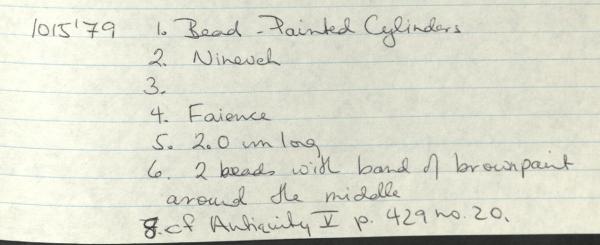 1015'79 1. Bead - Painted Cylinders
2. Nineveh
3.
4. Faience
5. 2.0 cm long
6. 2 beads with band of brown paint
around the middle
8. cf Antiquity V p. 429 no. 20.